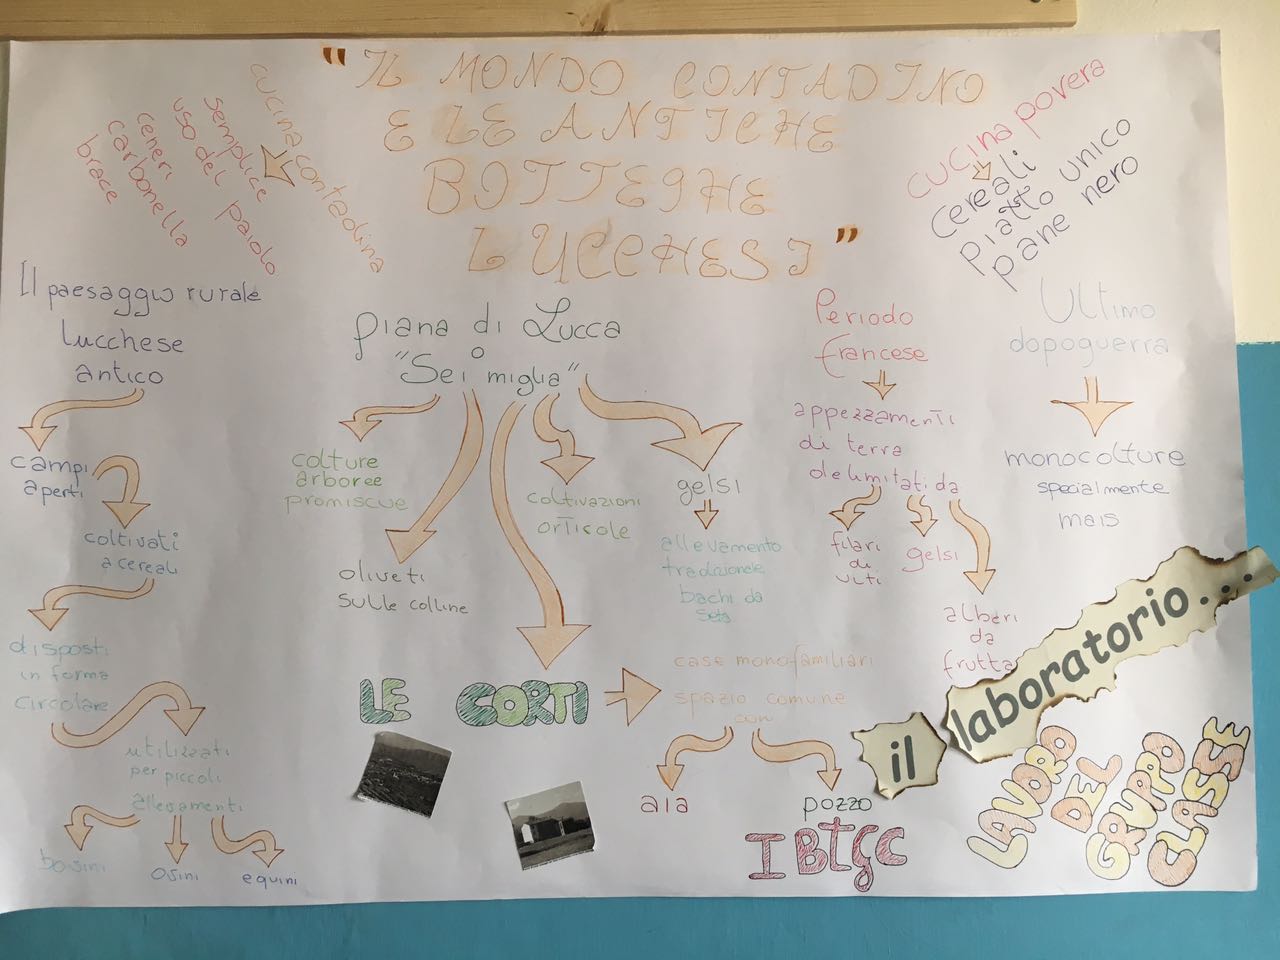 "IL MONDO CONTADINO
E LE ANTICHE
BOTTEGHE
LUCCHESI"
cucina contadina
semplice
uso del paiolo
ceneri
carbonella
brace
cucina povera
cereali
piatto unico
pane nero
Il paesaggio rurale
lucchese
antico
campi
aperti
coltivati
a cereali
disposti
in forma
circolare
utilizzati
per piccoli
allevamenti
bovini
ovini
equini
piana di Lucca
o
"Sei miglia"
colture
arboree
promiscue
oliveti
sulle colline
coltivazioni
orticole
gelsi
allevamento
tradizionale
bachi da
seta
LE CORTI
case monofamiliari
spazio comune
con
aia
pozzo
Periodo
francese
appezzamenti
di terra
delimitati da
filari
di
viti
gelsi
alberi
da
frutta
Ultimo
dopoguerra
monocolture
specialmente
mais
il laboratorio...
I BTGC
LAVORO
DEL
GRUPPO
CLASSE